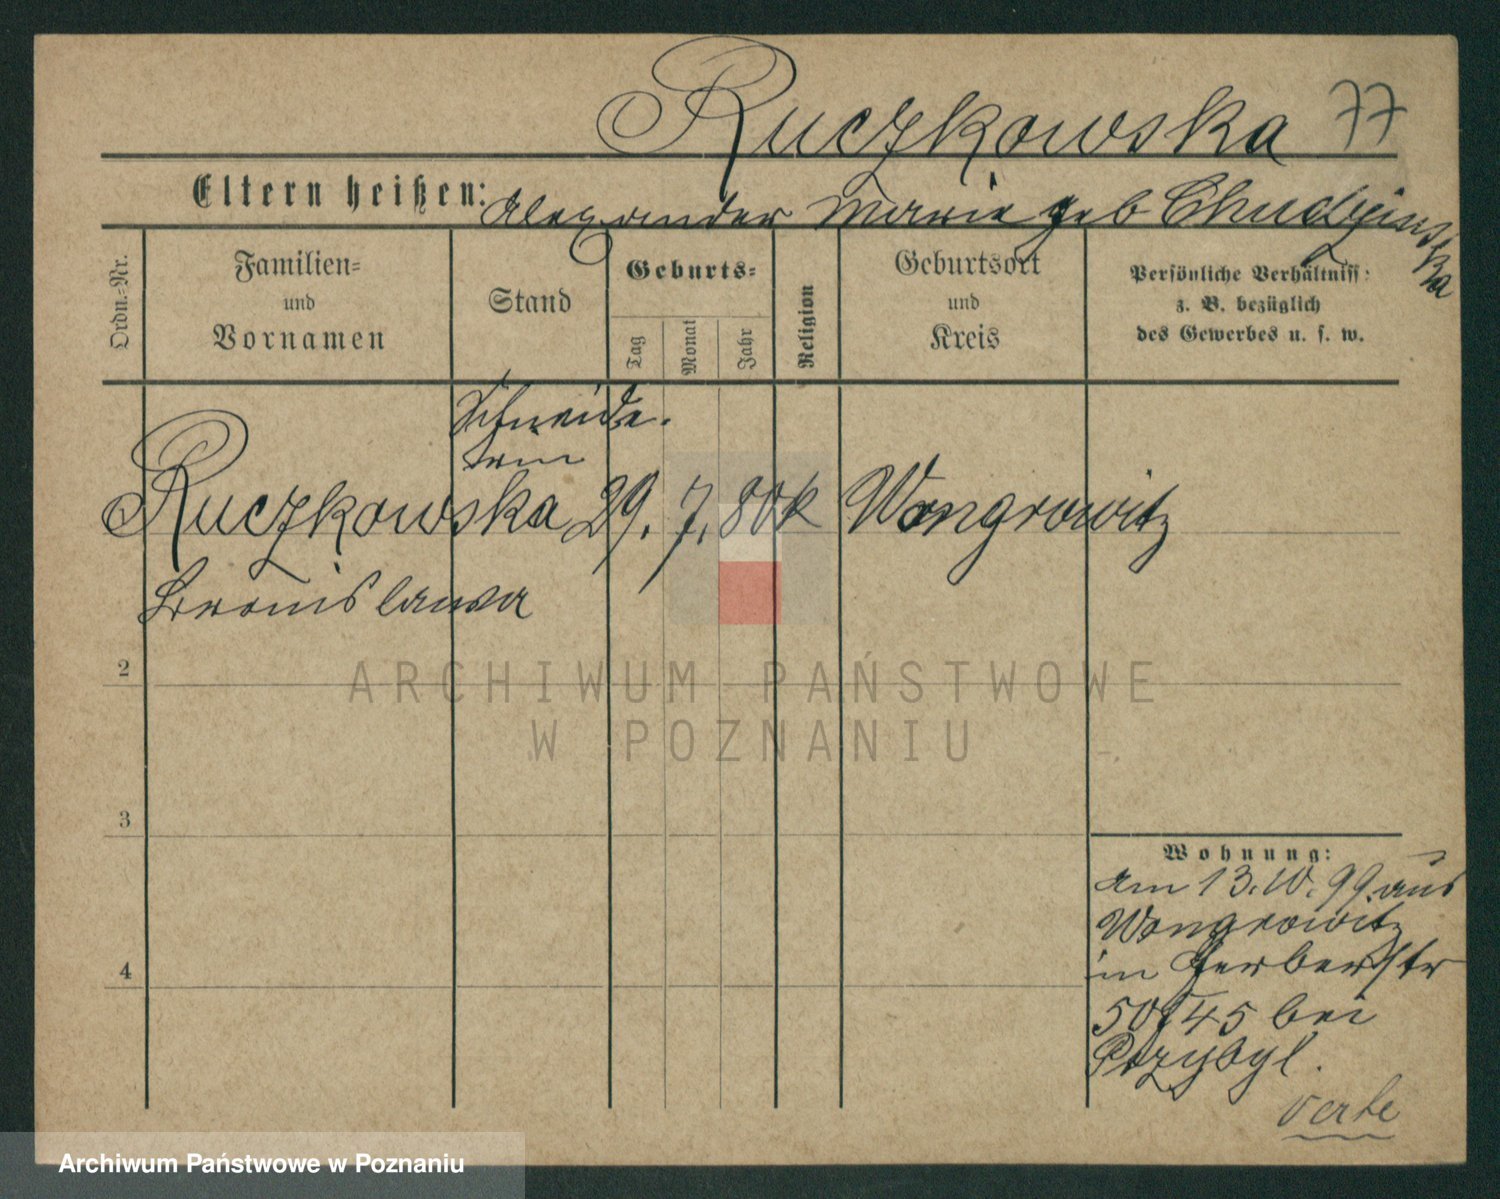 Ruczkowska 77
Eltern heißen: Alexander Marie geb Chudzinska
Ordn.-Nr.
Familien-
und
Vornamen
Stand
Geburts-
Tag
Monat
Jahr
Religion
Geburtsort
und
Kreis
Persönliche Verhältniss:
z. B. bezüglich
des Gewerbes u. s. w.
Schneide-
Ruczkowska 29. 7. 80 k Wongrowitz
Bronislawa
2
ARCHIWUM PAŃSTWOWE
W POZNANIU
3
Wohnung:
am 13. IV. 99 aus
Wongrowitz
in Gerberstr
bei
Przybyl.
4
verte
Archiwum Państwowe w Poznaniu